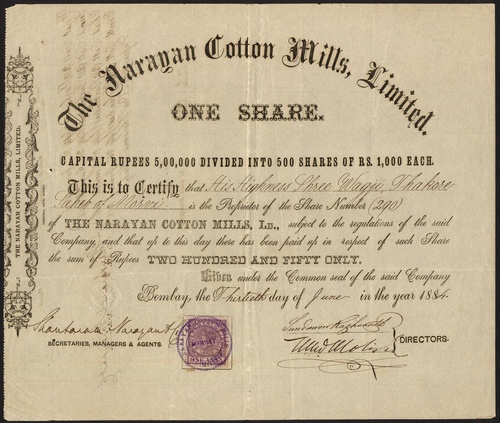 The Narayan Cotton Mills, Limited.
ONE SHARE.
CAPITAL RUPEES 5,00,000 DIVIDED INTO 500 SHARES OF RS. 1,000 EACH.
This is to Certify that His Highness Shree Wagji, Thakore
Saheb of Morvi is the Proprietor of the Share Number (290)
of THE NARAYAN COTTON MILLS, LD., subject to the regulations of the said
Company, and that up to this day there has been paid up in respect of such Share
the sum of Rupees TWO HUNDRED AND FIFTY ONLY.
Given under the Common seal of the said Company
Bombay, the Thirtieth day of June in the year 1884
Shantaram Narayan
SECRETARIES, MANAGERS & AGENTS.
DIRECTORS.
THE NARAYAN COTTON MILLS, LIMITED.